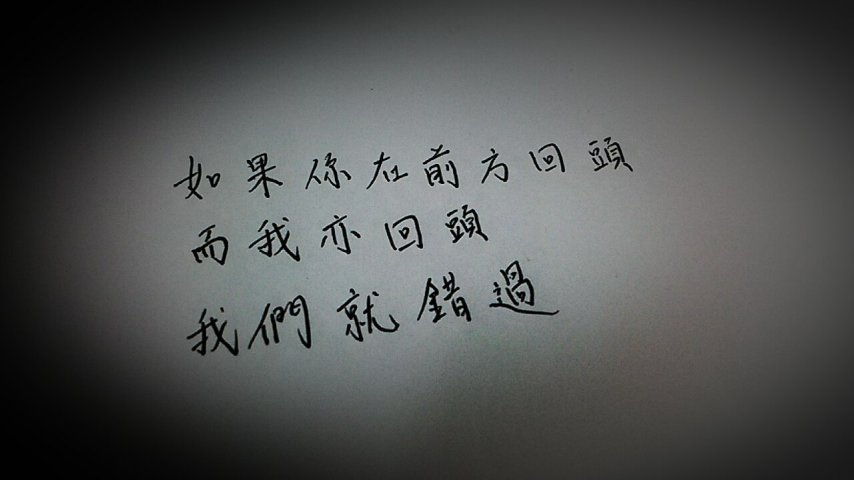 如果你在前方回頭
而我亦回頭
我們就錯過